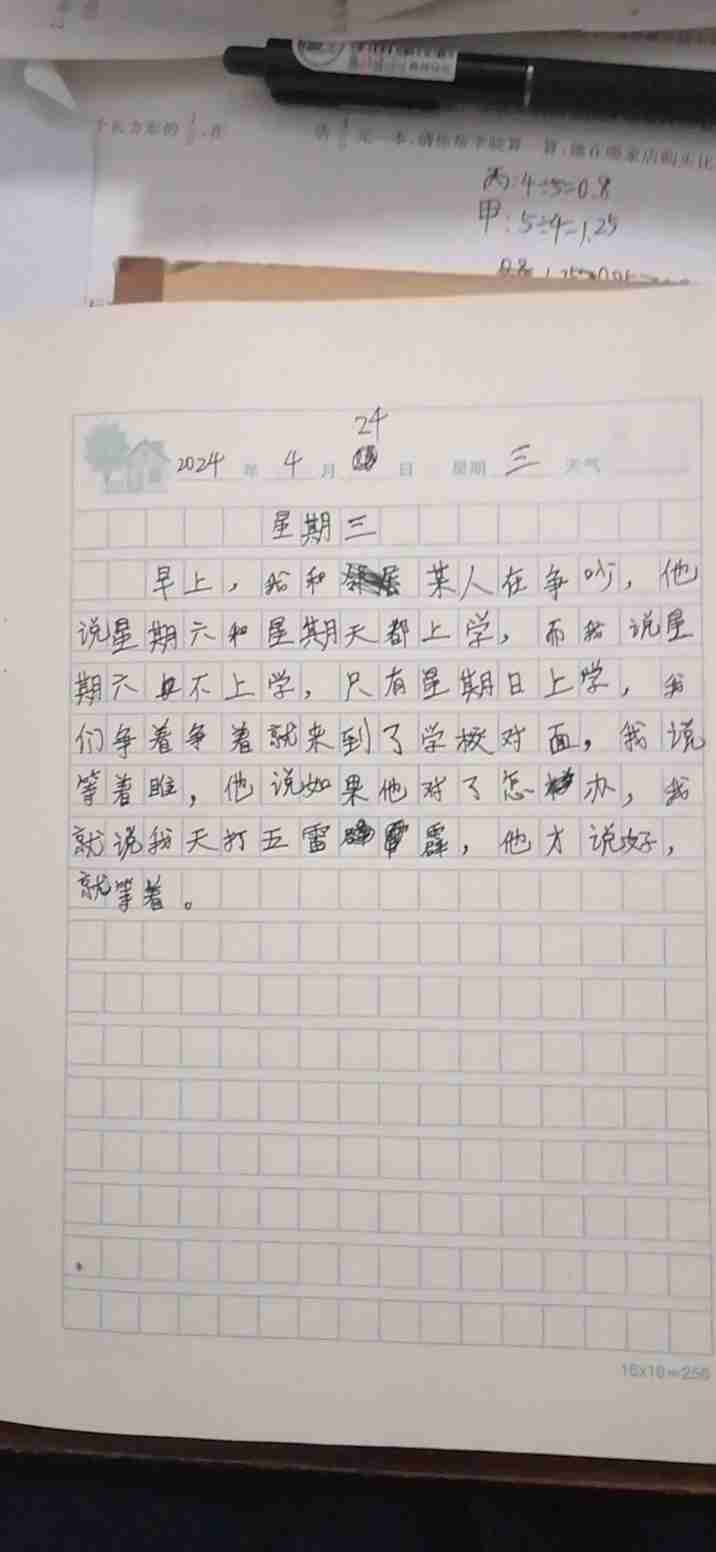 个长方形的
丙:4÷5=0.8
甲:5÷4=1.25
24
2024 年 4 月 日 星期 三 天气
星期三
早上，我和某人在争吵，他
说星期六和星期天都上学，而我说星
期六且不上学，只有星期日上学，我
们争着争着就来到了学校对面，我说
等着瞧，他说如果他对了怎办，我
就说我天打五雷霹，他才说好，
就等着。
16x16=256